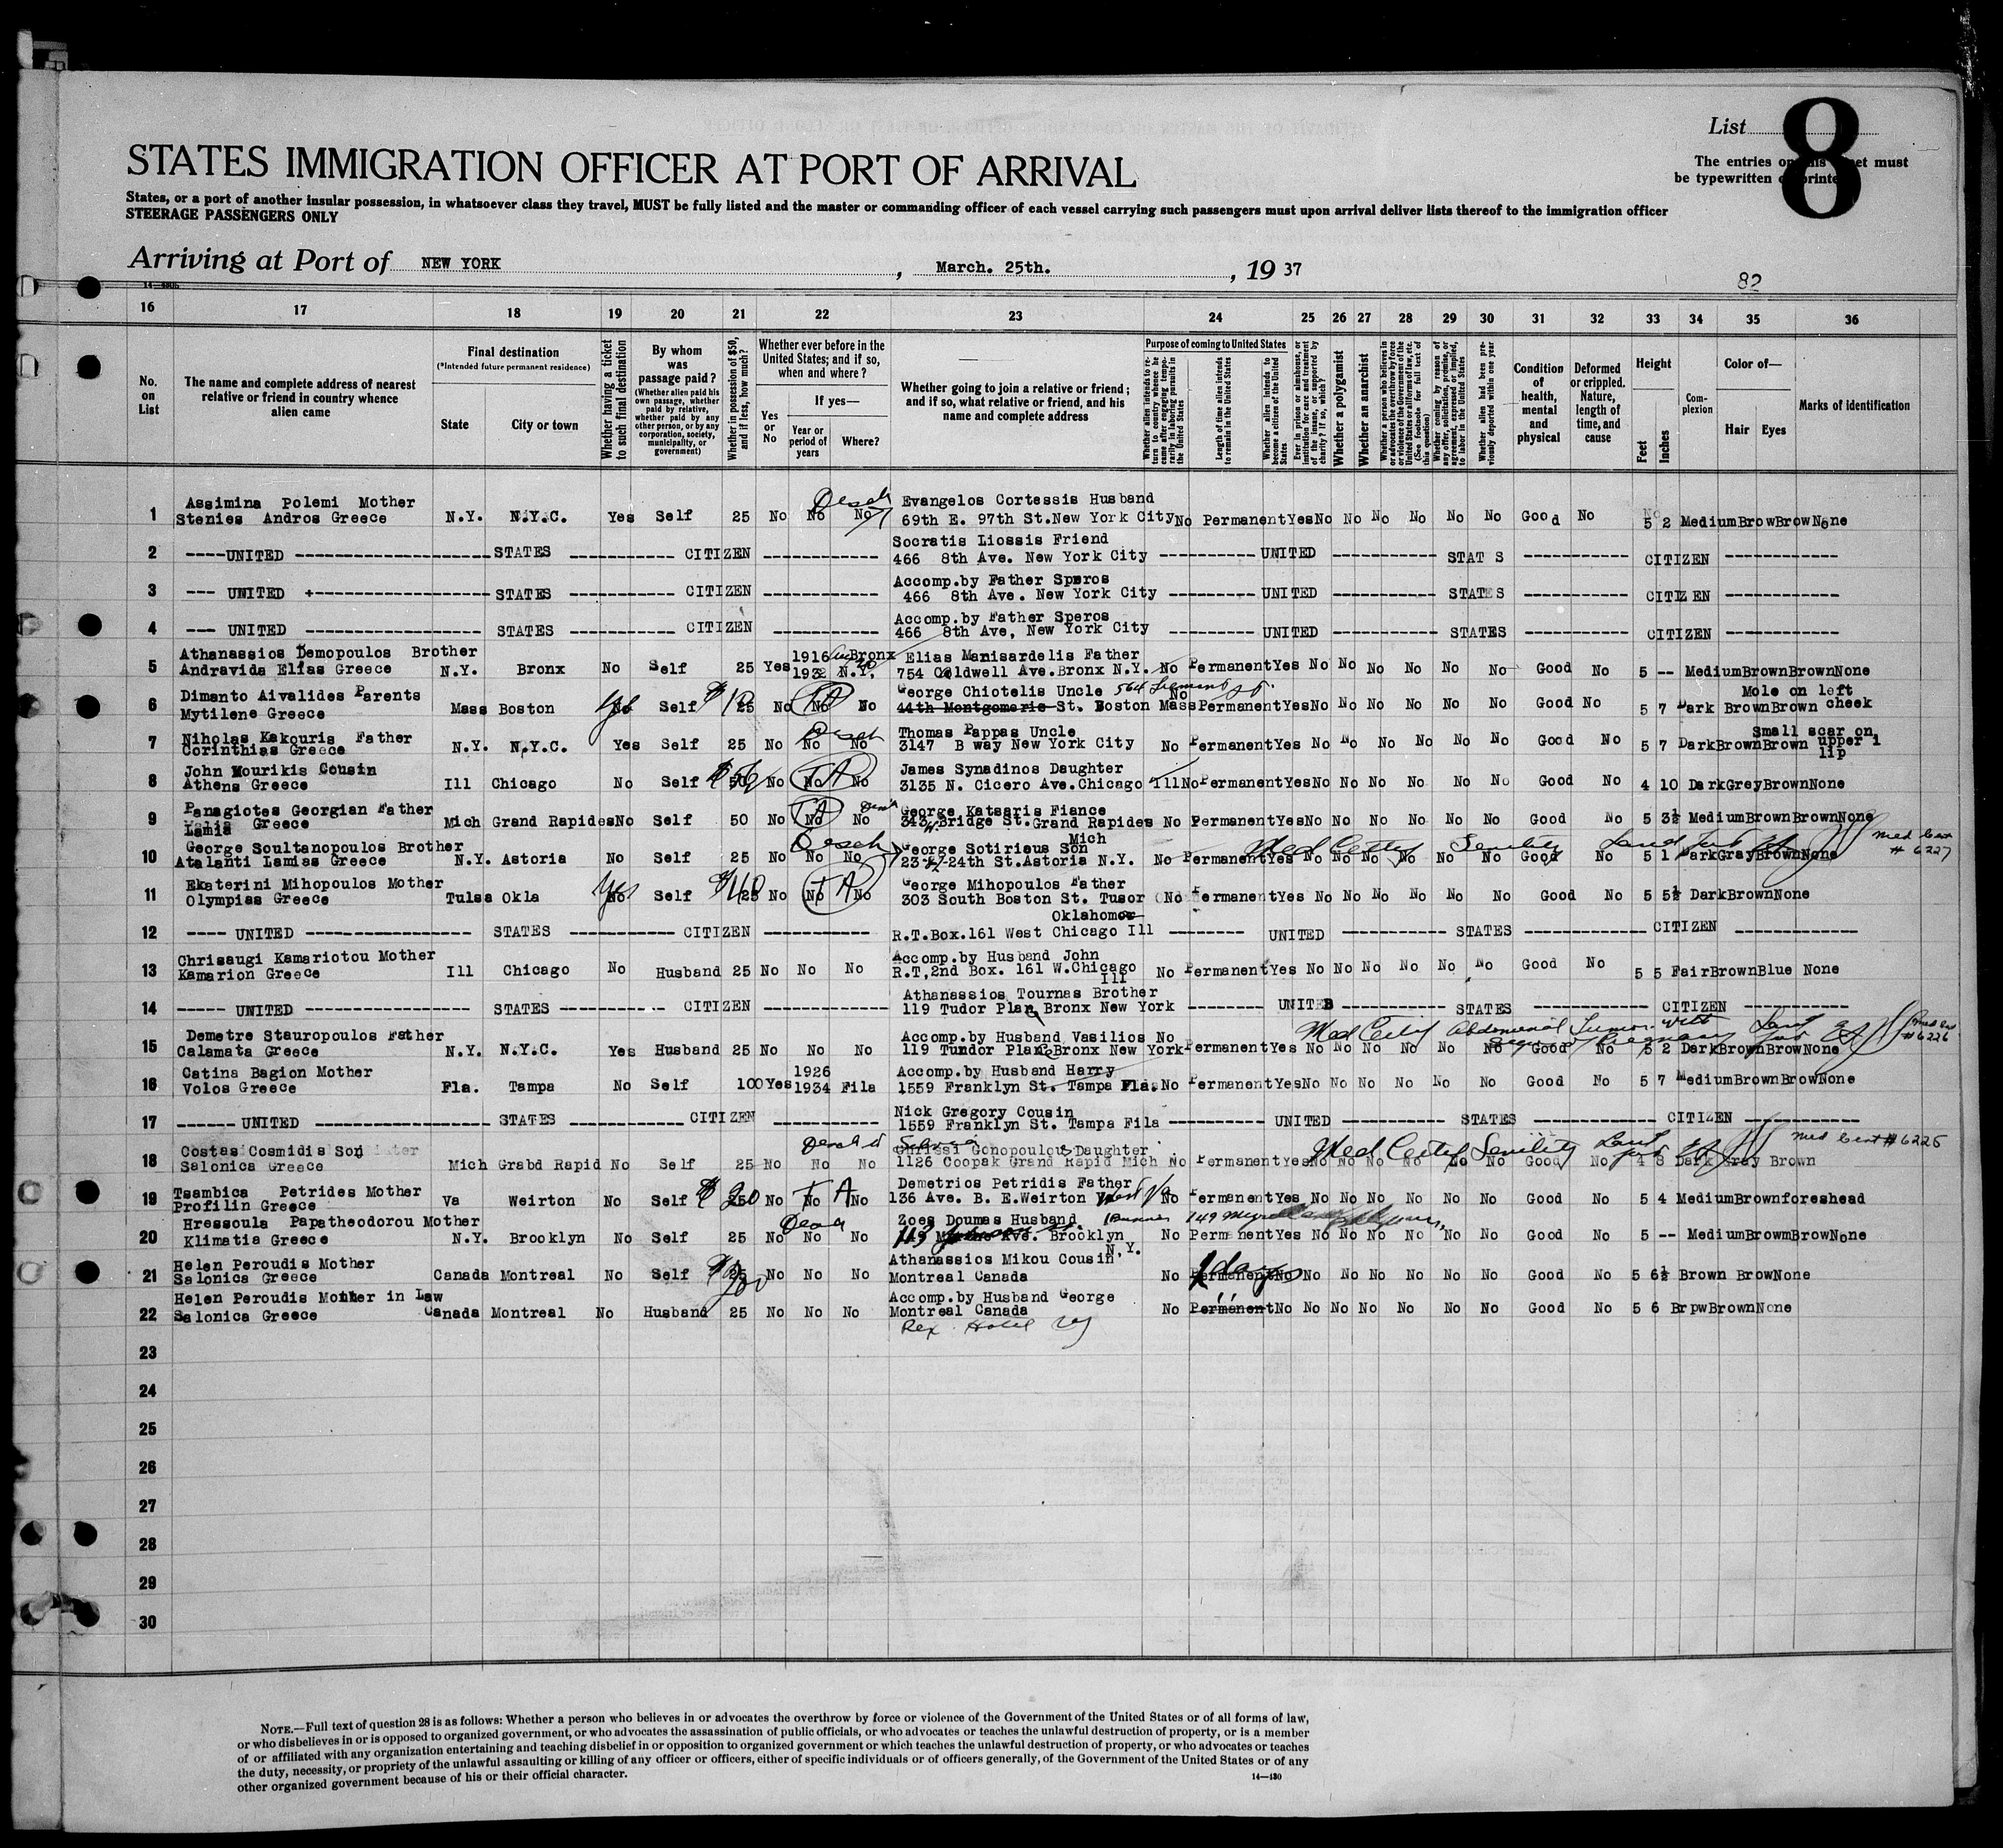 List 8
The entries on this sheet must
be typewritten or printed
STATES IMMIGRATION OFFICER AT PORT OF ARRIVAL
States, or a port of another insular possession, in whatsoever class they travel, MUST be fully listed and the master or commanding officer of each vessel carrying such passengers must upon arrival deliver lists thereof to the immigration officer
STEERAGE PASSENGERS ONLY
Arriving at Port of NEW YORK, March. 25th., 19 37
82
16 17 18 19 20 21 22 23 24 25 26 27 28 29 30 31 32 33 34 35 36
No. on List
The name and complete address of nearest relative or friend in country whence alien came
Final destination
(*Intended future permanent residence)
State
City or town
Whether having a ticket to such final destination
By whom was passage paid?
(Whether alien paid his own passage, whether paid by relative, whether paid by any other person, or by any corporation, society, municipality, or government)
Whether in possession of $50, and if less, how much?
Whether ever before in the United States; and if so, when and where?
Yes or No
If yes—
Year or period of years
Where?
Whether going to join a relative or friend; and if so, what relative or friend, and his name and complete address
Purpose of coming to United States
Whether alien intends to return to country whence he came after engaging temporarily in laboring pursuits in the United States
Length of time alien intends to remain in the United States
Whether alien intends to become a citizen of the United States
Ever in prison or almshouse, or institution for care and treatment of the insane, or supported by charity? If so, which?
Whether a polygamist
Whether an anarchist
Whether a person who believes in or advocates the overthrow by force or violence of the Government of the United States or all forms of law, etc. (See footnote for full text of this question)
Whether coming by reason of any offer, solicitation, promise, or agreement, expressed or implied, to labor in the United States
Whether alien had been previously deported within one year
Condition of health, mental and physical
Deformed or crippled. Nature, length of time, and cause
Height
Feet
Inches
Complexion
Color of—
Hair
Eyes
Marks of identification
Assimina Polemi Mother Evangelos Cortessis Husband
1 Stenies Andros Greece N.Y. N.Y.C. Yes Self 25 No No No 69th E. 97th St.New York City No Permanent Yes No No No No No No Good No 5 2 Medium Brow Brow None
Socratis Liossis Friend
2 -----UNITED ---------- STATES ---------- CITIZEN ---------- 466 8th Ave. New York City ---------- UNITED ---------- STAT S ---------- CITIZEN ----------
Accomp.by Father Speros
3 --- UNITED +---------- STATES ---------- CITIZEN ---------- 466 8th Ave. New York City ---------- UNITED ---------- STATES ---------- CITIZEN ----------
Accomp.by Father Speros
4 --- UNITED ---------- STATES ---------- CITIZEN ---------- 466 8th Ave, New York City ---------- UNITED ---------- STATES ---------- CITIZEN ----------
Athanassios Demopoulos Brother 1916 Bronx Elias Manisardelis Father
5 Andravida Elias Greece N.Y. Bronx No Self 25 Yes 1932 N.Y. 754 Coldwell Ave.Bronx N.Y. No Permanent Yes No No No No No No Good No 5 -- Medium Brown Brown None
Dimanto Aivalides Parents George Chiotelis Uncle 564 Mole on left
6 Mytilene Greece Mass Boston No Yes Self 25 No No TA No 44th Montgomerie St. Boston Mass No Permanent Yes No No No No No No Good No 5 7 Dark Brown Brown cheek
Niholas Kakouris Father Thomas Pappas Uncle Small scar on
7 Corinthias Greece N.Y. N.Y.C. Yes Self 25 No No No 3147 B way New York City No Permanent Yes No No No No No No Good No 5 7 Dark Brown Brown upper l
lip
John Mourikis Cousin James Synadinos Daughter
8 Athens Greece Ill Chicago No Self 50 No No TA No 3135 N. Cicero Ave.Chicago Ill No Permanent Yes No No No No No No Good No 4 10 Dark Grey Brown None
Panagiotes Georgian Father George Katsaris Fiance
9 Lamia Greece Mich Grand Rapides No Self 50 No No TA No 343 W. Bridge St.Grand Rapides No Permanent Yes No No No No No No Good No 5 3½ Medium Brown Brown None
Mich
George Soultanopoulos Brother George Sotirious Son Med Certif Senility Med Cert
10 Atalanti Lamias Greece N.Y. Astoria No Self 25 No No No 24th St.Astoria N.Y. No Permanent Yes No No No No No No Good No 5 1 Dark Gray Brown None # 6227
Ekaterini Mihopoulos Mother George Mihopoulos Father
11 Olympias Greece Tulsa Okla No Yes Self 25 No No TA No 303 South Boston St. Tusor No Permanent Yes No No No No No No Good No 5 5½ Dark Brown None
Oklahomor
12 ---- UNITED ---------- STATES ---------- CITIZEN ---------- R.T.Box.161 West Chicago Ill ---------- UNITED ---------- STATES ---------- CITIZEN ----------
Chrisaugi Kamariotou Mother Accomp.by Husband John
13 Kamarion Greece Ill Chicago No Husband 25 No No No R.T,2nd Box. 161 W.Chicago No Permanent Yes No No No No No No Good No 5 5 Fair Brown Blue None
Ill
Athanassios Tournas Brother
14 ---- UNITED ---------- STATES ---------- CITIZEN ---------- 119 Tudor Plan, Bronx New York ---------- UNITED ---------- STATES ---------- CITIZEN ----------
Demetre Stauropoulos Father Accomp.by Husband Vasilios No Med Certif Abdominal Tumor with Med Cert
15 Calamata Greece N.Y. N.Y.C. Yes Husband 25 No No No 119 Tundor Plan Bronx New York Permanent Yes No No No No No No Good No 5 2 Dark Brown Brow None #6226
Catina Bagion Mother 1926 Accomp.by Husband Harry
16 Volos Greece Fla. Tampa No Self 100 Yes 1934 Fila 1559 Franklyn St. Tampa Fla. No Permanent Yes No No No No No No Good No 5 7 Medium Brown Brow None
Nick Gregory Cousin
17 ------ UNITED ---------- STATES ---------- CITIZEN ---------- 1559 Franklyn St. Tampa Fila ---------- UNITED ---------- STATES ---------- CITIZEN ----------
Costas Cosmidis Son Chrissi Gonopoulos Daughter Med Certif Senility Med Cert #6225
18 Salonica Greece Mich Grabd Rapid No Self 25 No No No 1126 Coopak Grand Rapid Mich No Permanent Yes No No No No No No Good No 4 8 Dark Gray Brown
Tsambica Petridis Mother Demetrios Petridis Father
19 Profilin Greece Va Weirton No Self $ 20 No No TA No 136 Ave. B. E.Weirton West Va No Permanent Yes No No No No No No Good No 5 4 Medium Brown foreshead
Hressoula Papatheodorou Mother Zoes Doumas Husband 149
20 Klimatia Greece N.Y. Brooklyn No Self 25 No No No Ave. Brooklyn No Permanent Yes No No No No No No Good No 5 -- Medium Browm Brow None
N.Y.
Helen Peroudis Mother Athanassios Mikou Cousin
21 Salonica Greece Canada Montreal No Self 25 No No No Montreal Canada No Permanent days No No No No No No No Good No 5 6½ Brown Brow None
Helen Peroudis Mother in Law Accomp.by Husband George
22 Salonica Greece Canada Montreal No Husband 25 No No No Montreal Canada No Permanent " No No No No No No No Good No 5 6 Brpw Brown None
Rex Hotel
23
24
25
26
27
28
29
30
NOTE.—Full text of question 28 is as follows: Whether a person who believes in or advocates the overthrow by force or violence of the Government of the United States or of all forms of law,
or who disbelieves in or is opposed to organized government, or who advocates the assassination of public officials, or who advocates or teaches the unlawful destruction of property, or is a member
of or affiliated with any organization entertaining and teaching disbelief in or opposition to organized government or which teaches the unlawful destruction of property, or who advocates or teaches
the duty, necessity, or propriety of the unlawful assaulting or killing of any officer or officers, either of specific individuals or of officers generally, of the Government of the United States or of any
other organized government because of his or their official character.
14—130